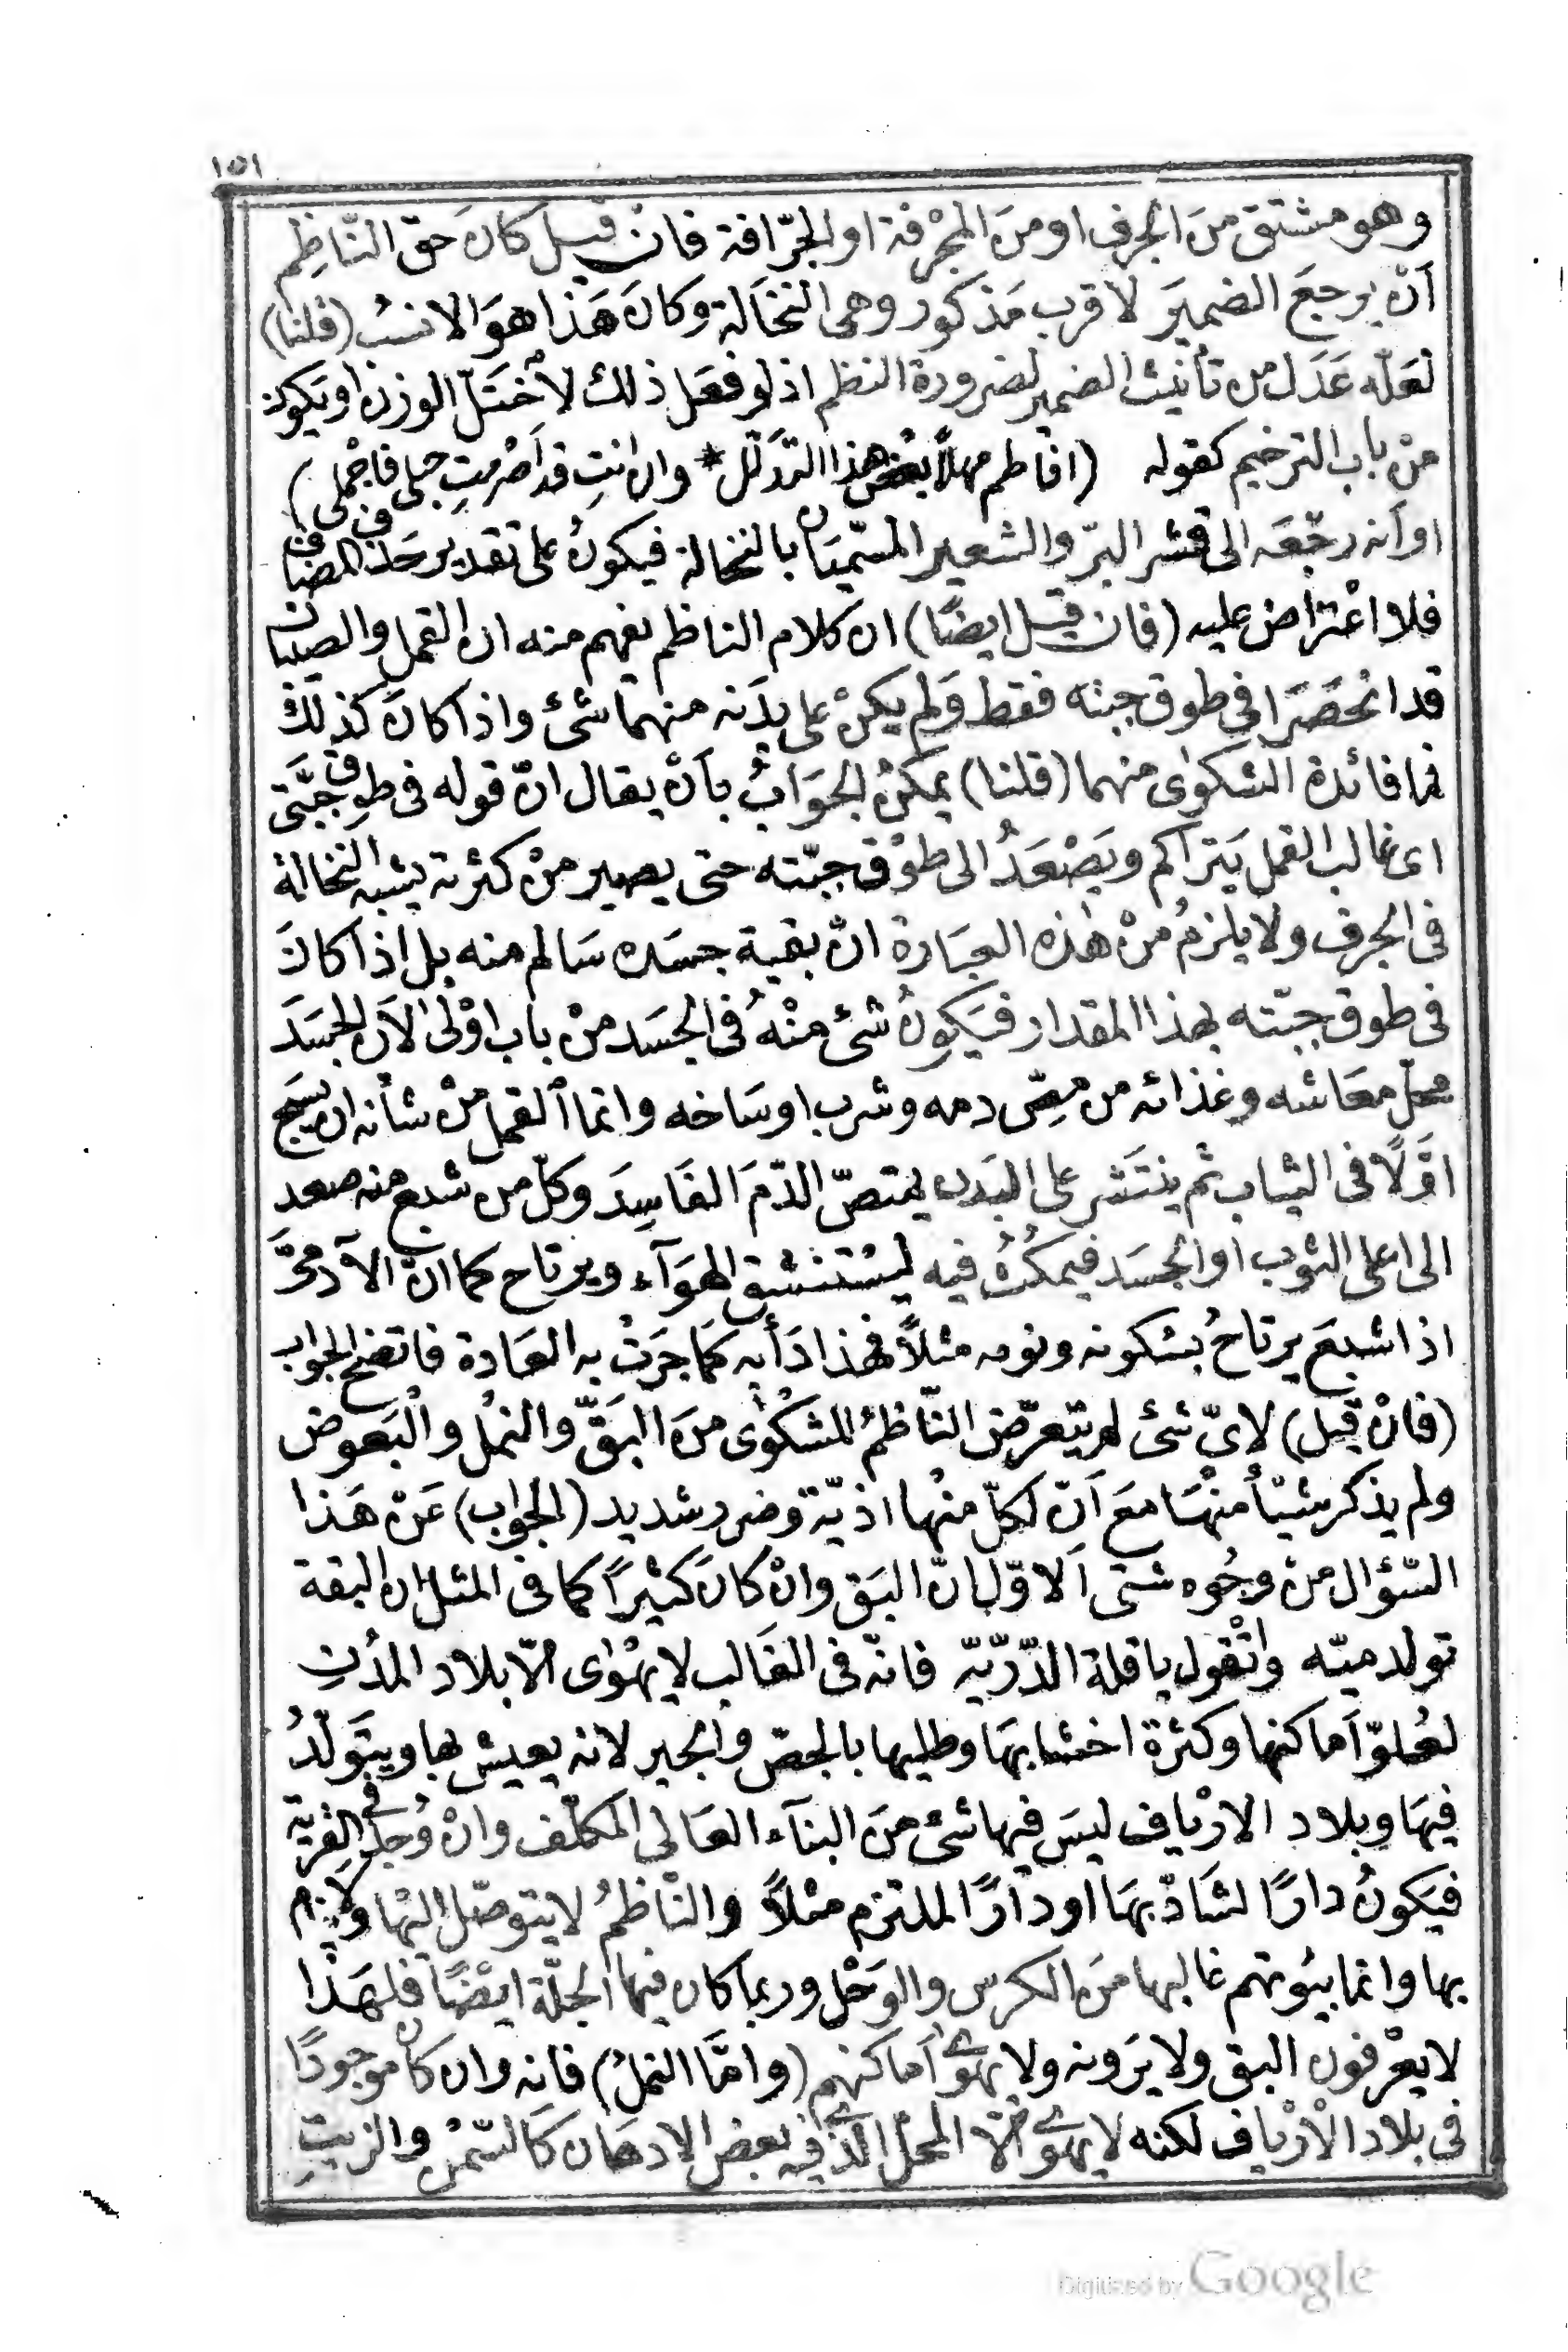 ١٥١
وهو مشتق منَ الجرف او منَ المجْرفة او الجرّافة فان قيل كانَ حقّ النّاظِم
اَنْ يرجعَ الضميَر لاقرب مَذكور وهى النخَالة وكانَ هَذا هوَ الانسبُ (قلنا)
لعَلّه عَدَل من تأنيث الضمير لضرورة النظم اذ لو فعَل ذلك لأختَلّ الوزن او يكون
منْ باب الترخيم كقوله (افاطم مهلاً بعْض هذا التدَلّل * وان انتِ قد اَصْرمتِ حبلى فاجْملى)
او اَنه رجّعَه الى قشر البرّ والشعير المسّميَان بالنخالة فيكونُ على تقدير حَذف المضاف
فلا اعْتراض عليه (فان قيل ايضًا) ان كلام الناظم يفهم منه ان القمل والصيبان
قد انحَصَرَا فى طوق جبته فقط وَلم يكنْ على بدَنه منهما شئ واذا كانَ كذلك
فما فائدة الشكوٰى منهما (قلنا) يمكنُ الجوَابُ بأنْ يقال انّ قوله فى طوق جبَّتى
اى غالب القمل يَتراكم ويَصْعَدُ الى طوْق جبّته حتى يصير منْ كثرته يشبه النخالة
فى الجرف ولا يلزمُ منْ هٰذه العبَارة انّ بقية جسَده سَالم منه بل اذا كانَ
فى طوق جبّته بهذا المقدار فيَكونُ شئ منْهُ فى الجسَد منْ باب اوْلى لاَن الجسَدَ
محلّ معَاشه وغذائه من مصّى دمه وشرب اوسَاخه وانما القمل منْ شأنه ان يسبح
اوّلاً فى الثياب ثم ينتَشر على البَدن ليمتصّ الدّمَ الفَاسِدَ وكلّ من شبع منه صعد
الى اعلى الثوب او الجسَد فيمكُثُ فيه ليسْتنشق الهوَآء ويرتاح كما انّ الآدمىَّ
اذا شبعَ يرتاحُ بسْكونه ونومه مثلاً فهذا دَأبه كمَا جرَتْ به العَادة فاتضح الجواب
(فانْ قيل) لاىّ شئ لم يتعرّض النّاظمُ للشكوٰى منَ البَقّ والنمْل والْبَعوض
ولم يذكر شيْأ منهَا معَ اَنّ لكلّ منْها اذيّة وضرر شديد (الجواب) عَنْ هَذا
السّؤال منْ وجُوه شتى اَلاوّل انّ البَق وانْ كانَ كثيْراً كما فى المثل ان البقة
تولد ميّه وتْقول يا قلة الذّرّيّه فانّه فى الغَالب لا يهْوٰى الاّ بلاد المدُن
لعُلوّ اَماكنها وكثرة اخشابهَا وطليها بالجصّ والجير لانه يعيش بها ويتَولّدُ
فيهَا وبلاد الارْياف ليسَ فيها شئ منَ البنآء العَالى المكلّف وانْ وُجدَ فى القرْية
فيَكونُ دارًا لشَادّ بهَا او دارًا للملتزم مثلاً والنّاظمُ لا يتوصّل اليْها ولا يتم
بها وانما بيُوتهم غالبها منَ الكرس والوَحْل وربما كان فيها الجلّة ايْضًا فلهَذا
لا يعْرفون البق ولا يرَونه ولا يهوى اَماكنهم (وامّا النملُ) فانه وان كان موجودًا
فى بلاد الْارْياف لكنه لا يهوى الاّ المحلّ الذى فيه بعض الادهَان كالسّمْن والزيتِ